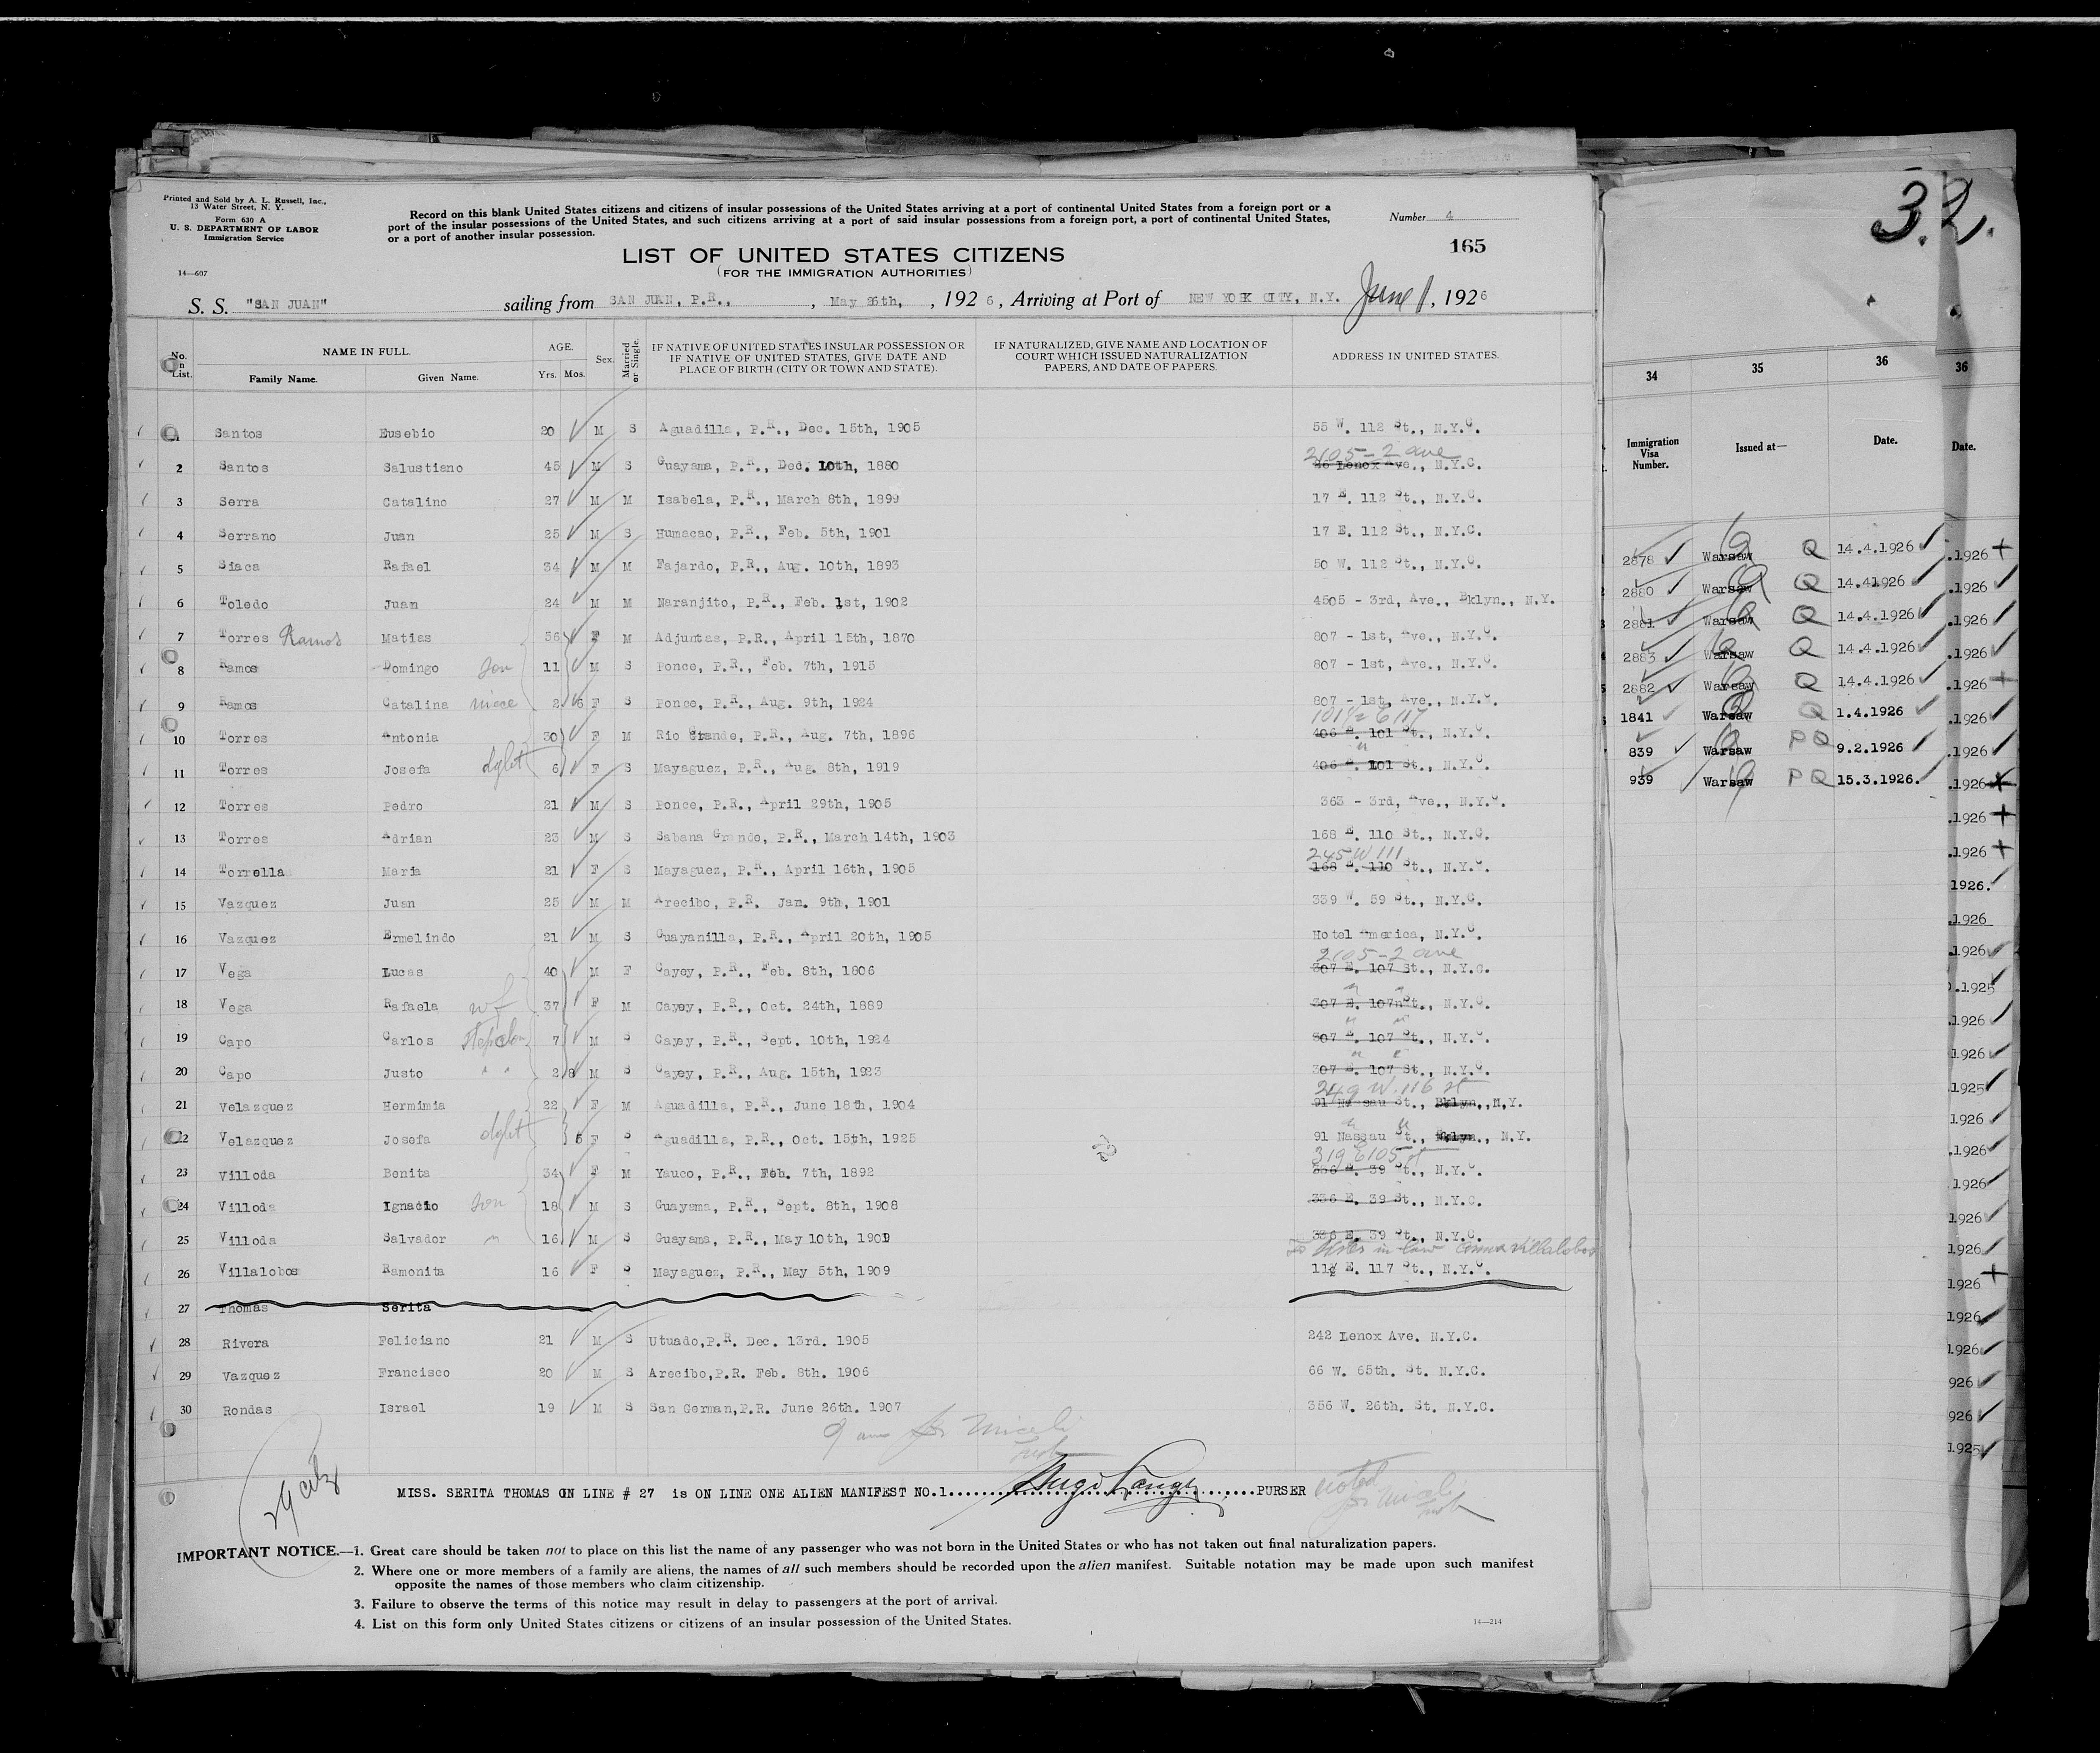 Printed and Sold by A. L. Russell, Inc.,
13 Water Street, N. Y.
Form 630 A
U. S. DEPARTMENT OF LABOR
Immigration Service
14—607
Record on this blank United States citizens and citizens of insular possessions of the United States arriving at a port of continental United States from a foreign port or a
port of the insular possessions of the United States, and such citizens arriving at a port of said insular possessions from a foreign port, a port of continental United States,
or a port of another insular possession.
Number 4
165
LIST OF UNITED STATES CITIZENS
(FOR THE IMMIGRATION AUTHORITIES)
S. S. "SAN JUAN" sailing from SAN JUAN, P.R., , May 26th, , 192 6, Arriving at Port of NEW YORK CITY, N.Y. June 1, 1926
No. on List. NAME IN FULL. Family Name. Given Name. AGE. Yrs. Mos. Sex. Married or Single. IF NATIVE OF UNITED STATES INSULAR POSSESSION OR IF NATIVE OF UNITED STATES, GIVE DATE AND PLACE OF BIRTH (CITY OR TOWN AND STATE). IF NATURALIZED, GIVE NAME AND LOCATION OF COURT WHICH ISSUED NATURALIZATION PAPERS, AND DATE OF PAPERS. ADDRESS IN UNITED STATES.
1 Santos Eusebio 20 M S Aguadilla, P.R., Dec. 15th, 1905 55 W. 112 St., N.Y.C.
2105-2 ave
2 Santos Salustiano 45 M S Guayama, P.R., Dec. 10th, 1880 Lenox Ave., N.Y.C.
3 Serra Catalino 27 M M Isabela, P.R., March 8th, 1899 17 E. 112 St., N.Y.C.
4 Serrano Juan 25 M S Humacao, P.R., Feb. 5th, 1901 17 E. 112 St., N.Y.C.
5 Siaca Rafael 34 M M Fajardo, P.R., Aug. 10th, 1893 50 W. 112 St., N.Y.C.
6 Toledo Juan 24 M M Naranjito, P.R., Feb. 1st, 1902 4505 - 3rd, Ave., Bklyn., N.Y.
7 Torres Ramos Matias 56 F M Adjuntas, P.R., April 15th, 1870 807 - 1st, Ave., N.Y.C.
8 Ramos Domingo son 11 M S Ponce, P.R., Feb. 7th, 1915 807 - 1st, Ave., N.Y.C.
9 Ramos Catalina niece 2 6 F S Ponce, P.R., Aug. 9th, 1924 807 - 1st, Ave., N.Y.C.
101½ E 117
10 Torres Antonia 30 F M Rio Grande, P.R., Aug. 7th, 1896 406 E. 101 St., N.Y.C.
11 Torres Josefa dght 6 F S Mayaguez, P.R., Aug. 8th, 1919 406 E. 101 St., N.Y.C.
12 Torres Pedro 21 M S Ponce, P.R., April 29th, 1905 363 - 3rd, Ave., N.Y.C.
13 Torres Adrian 23 M S Sabana Grande, P.R., March 14th, 1903 168 E. 110 St., N.Y.C.
245 W 111
14 Torrella Maria 21 F S Mayaguez, P.R., April 16th, 1905 168 E. 110 St., N.Y.C.
15 Vazquez Juan 25 M M Arecibo, P.R. Jan. 9th, 1901 339 W. 59 St., N.Y.C.
16 Vazquez Ermelindo 21 M S Guayanilla, P.R., April 20th, 1905 Hotel America, N.Y.C.
2105-2 ave
17 Vega Lucas 40 M F Cayey, P.R., Feb. 8th, 1806 307 E. 107 St., N.Y.C.
18 Vega Rafaela wf 37 F M Cayey, P.R., Oct. 24th, 1889 307 E. 107 St., N.Y.C.
19 Capo Carlos stepson 7 M S Cayey, P.R., Sept. 10th, 1924 307 E. 107 St., N.Y.C.
20 Capo Justo " " 2 8 M S Cayey, P.R., Aug. 15th, 1923 307 E. 107 St., N.Y.C.
249 W. 116 st
21 Velazquez Hermimia 22 F M Aguadilla, P.R., June 18th, 1904 91 Nassau St., Bklyn., N.Y.
22 Velazquez Josefa dght 5 F S Aguadilla, P.R., Oct. 15th, 1925 91 Nassau St., Bklyn., N.Y.
319 E 105 st
23 Villoda Benita 34 F M Yauco, P.R., Feb. 7th, 1892 336 E. 39 St., N.Y.C.
24 Villoda Ignacio son 18 M S Guayama, P.R., Sept. 8th, 1908 336 E. 39 St., N.Y.C.
25 Villoda Salvador " 16 M S Guayama, P.R., May 10th, 1909 336 E. 39 St., N.Y.C.
To sister in law Anna Villalobos
26 Villalobos Ramonita 16 F S Mayaguez, P.R., May 5th, 1909 112 E. 117 St., N.Y.C.
27 Thomas Serita
28 Rivera Feliciano 21 M S Utuado,P.R. Dec. 13rd. 1905 242 Lenox Ave. N.Y.C.
29 Vazquez Francisco 20 M S Arecibo,P.R. Feb. 8th. 1906 66 W. 65th. St. N.Y.C.
30 Rondas Israel 19 M S San German,P.R. June 26th. 1907 356 W. 26th. St. N.Y.C.
29 citz
MISS. SERITA THOMAS ON LINE # 27 is ON LINE ONE ALIEN MANIFEST NO.1 PURSER
noted
IMPORTANT NOTICE.—1. Great care should be taken not to place on this list the name of any passenger who was not born in the United States or who has not taken out final naturalization papers.
2. Where one or more members of a family are aliens, the names of all such members should be recorded upon the alien manifest. Suitable notation may be made upon such manifest
opposite the names of those members who claim citizenship.
3. Failure to observe the terms of this notice may result in delay to passengers at the port of arrival.
4. List on this form only United States citizens or citizens of an insular possession of the United States.
14—214
32.
34 35 36 36
Immigration Visa Number. Issued at— Date. Date.
2878 Warsaw Q 14.4.1926 .1926
2880 Warsaw Q 14.41926 .1926
2881 Warsaw Q 14.4.1926 .1926
2883 Warsaw Q 14.4.1926 .1926
2882 Warsaw Q 14.4.1926 .1926
1841 Warsaw Q 1.4.1926 .1926
839 Warsaw PQ 9.2.1926 .1926
939 Warsaw PQ 15.3.1926. .1926
.1926
.1926
1926.
.1926
.1926
.1925
.1926
.1926
.1925
.1926
.1926
.1926
1926
1926
1926
1926
1926
926
926
1925